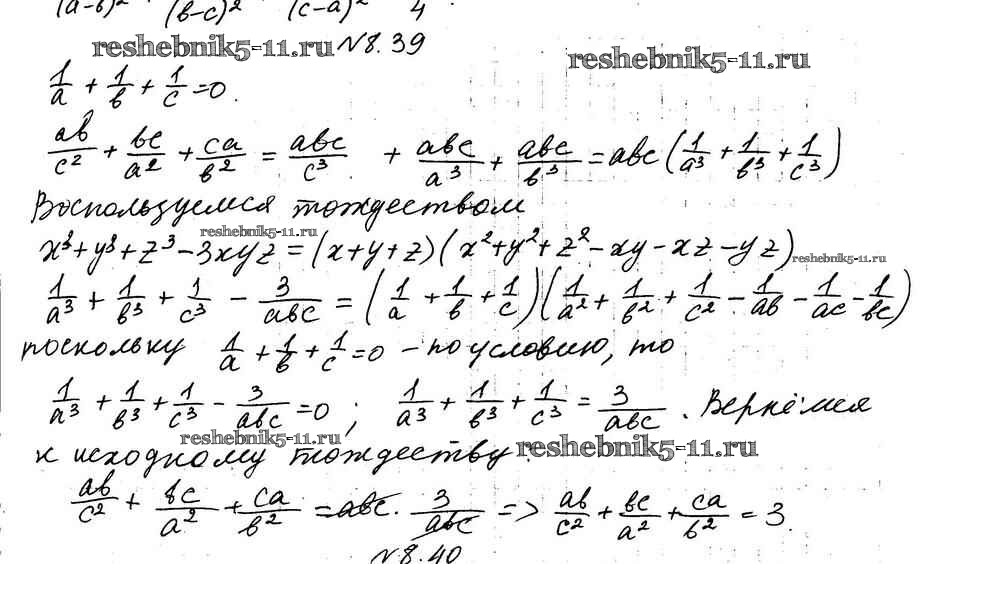 (a-b)² (b-c)² (c-a)² 4
reshebnik5-11.ru N8.39 reshebnik5-11.ru
1/a + 1/b + 1/c = 0.
ab/c² + bc/a² + ca/b² = abc/c³ + abc/a³ + abc/b³ = abc(1/a³ + 1/b³ + 1/c³)
Воспользуемся тождеством
reshebnik5-11.ru
x³+y³+z³-3xyz=(x+y+z)(x²+y²+z²-xy-xz-yz) reshebnik5-11.ru
1/a³ + 1/b³ + 1/c³ - 3/abc = (1/a + 1/b + 1/c)(1/a² + 1/b² + 1/c² - 1/ab - 1/ac - 1/bc)
поскольку 1/a + 1/b + 1/c = 0 - по условию, то
1/a³ + 1/b³ + 1/c³ - 3/abc = 0; 1/a³ + 1/b³ + 1/c³ = 3/abc. Вернёмся
reshebnik5-11.ru
к исходному тождеству: reshebnik5-11.ru
ab/c² + bc/a² + ca/b² = abc · 3/abc => ab/c² + bc/a² + ca/b² = 3.
N8.40